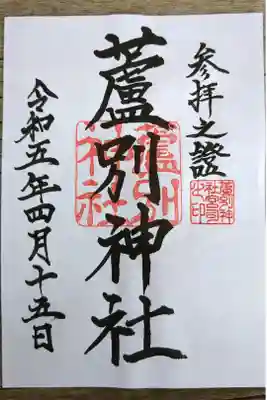 参拝之證
蘆別神社
令和五年四月十五日
蘆別
神社
蘆別神
社宮司
之印